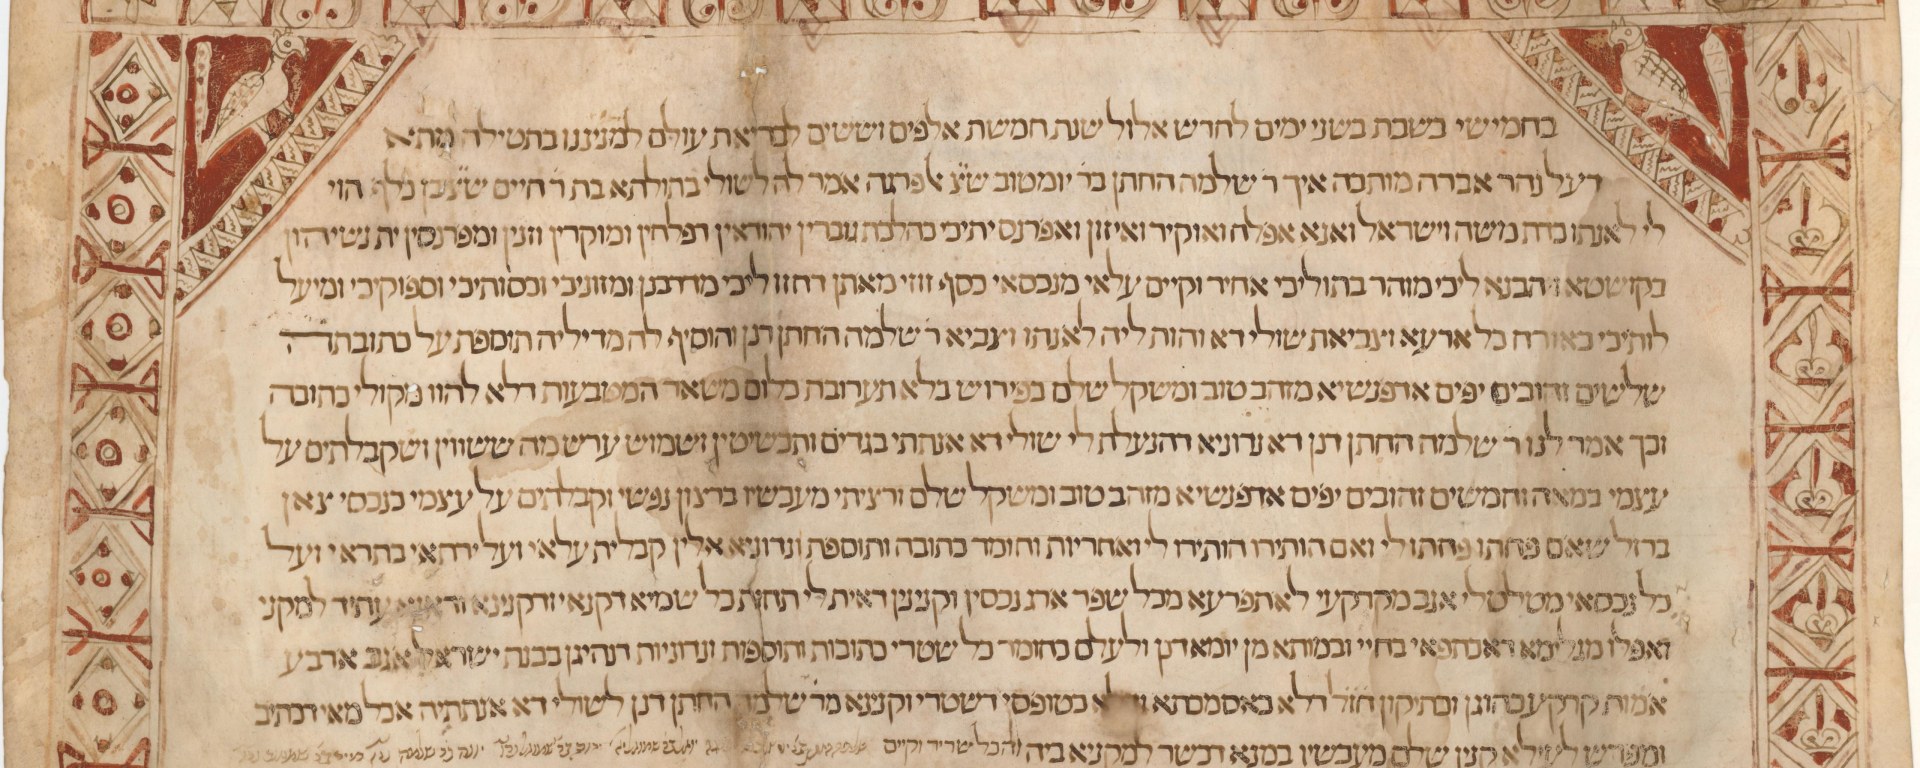 בחמישי בשבת בשני ימים לחדש אלול שנת חמשת אלפים וששים לבריאת עולם למניננו בתטילה מתא
דעל נהר אברה מותבה איך ר שלמה החתן בר יומטוב אמר לה לשולי בתולתא בת ר חיים הוי
לי לאנתו כדת משה וישראל ואנא אפלח ואוקיר ואיזון ואפרנס יתיכי כהלכת גוברין יהודאין דפלחין ומוקרין וזנין ומפרנסין ית נשיהון
בקושטא ויהבנא ליכי מוהר בתוליכי אחיד וקיים עלאי מנכסאי כסף זוזי מאתן דחזו ליכי מדרבנן ומזוניכי וכסותיכי וספוקיכי ומיעל
לותיכי כאורח כל ארעא וצביאת שולי דא והות ליה לאנתו וצביא ר שלמה החתן דנן והוסיף לה מדיליה תוספת על כתובתה
שלשים זהובים יפים אדפנשיא מזהב טוב ומשקל שלם בפירוש בלא תערובת כלום משאר המטבעות דלא להוו מקולי כתובה
וכך אמר לנו ר שלמה החתן דנן דא נדוניא דהנעלת לי שולי דא אנתתי בגדים ותכשיטין ושמוש ערש מה ששווין ושקבלתים על
עצמי במאה וחמשים זהובים יפים אדפנשיא מזהב טוב ומשקל שלם ורציתי מעכשיו ברצון נפשי וקבלתים על עצמי כנכסי צאן
ברזל שאם פחתו פחתו לי ואם הותירו הותירו לי ואחריות וחומר כתובה ותוספת ונדוניא אלין קבלית עלאי ועל ירתאי בתראי ועל
כל נכסאי מטלטלי אגב מקרקעי לאתפרעא מכל שפר ארג נכסין וקנינין דאית לי תחות כל שמיא דקנאי ודקנינא ודאנא עתיד למקני
ואפלו מגלימא דאכתפאי בחיי ובמותא מן יומא דנן ולעלם כחומר כל שטרי כתובות ותוספות ונדוניות דנהיגן בבנת ישראל אגב ארבע
אמות קרקע כהוגן וכתיקון חזל דלא כאסמכתא ודלא כטופסי דשטרי וקנינא מר שלמה החתן דנן לשולי דא אנתתיה אכל מאי דכתיב
ומפרש לעילא קנין שלם מעכשיו במנא דכשר למקניא ביה והכל שריר וקיים